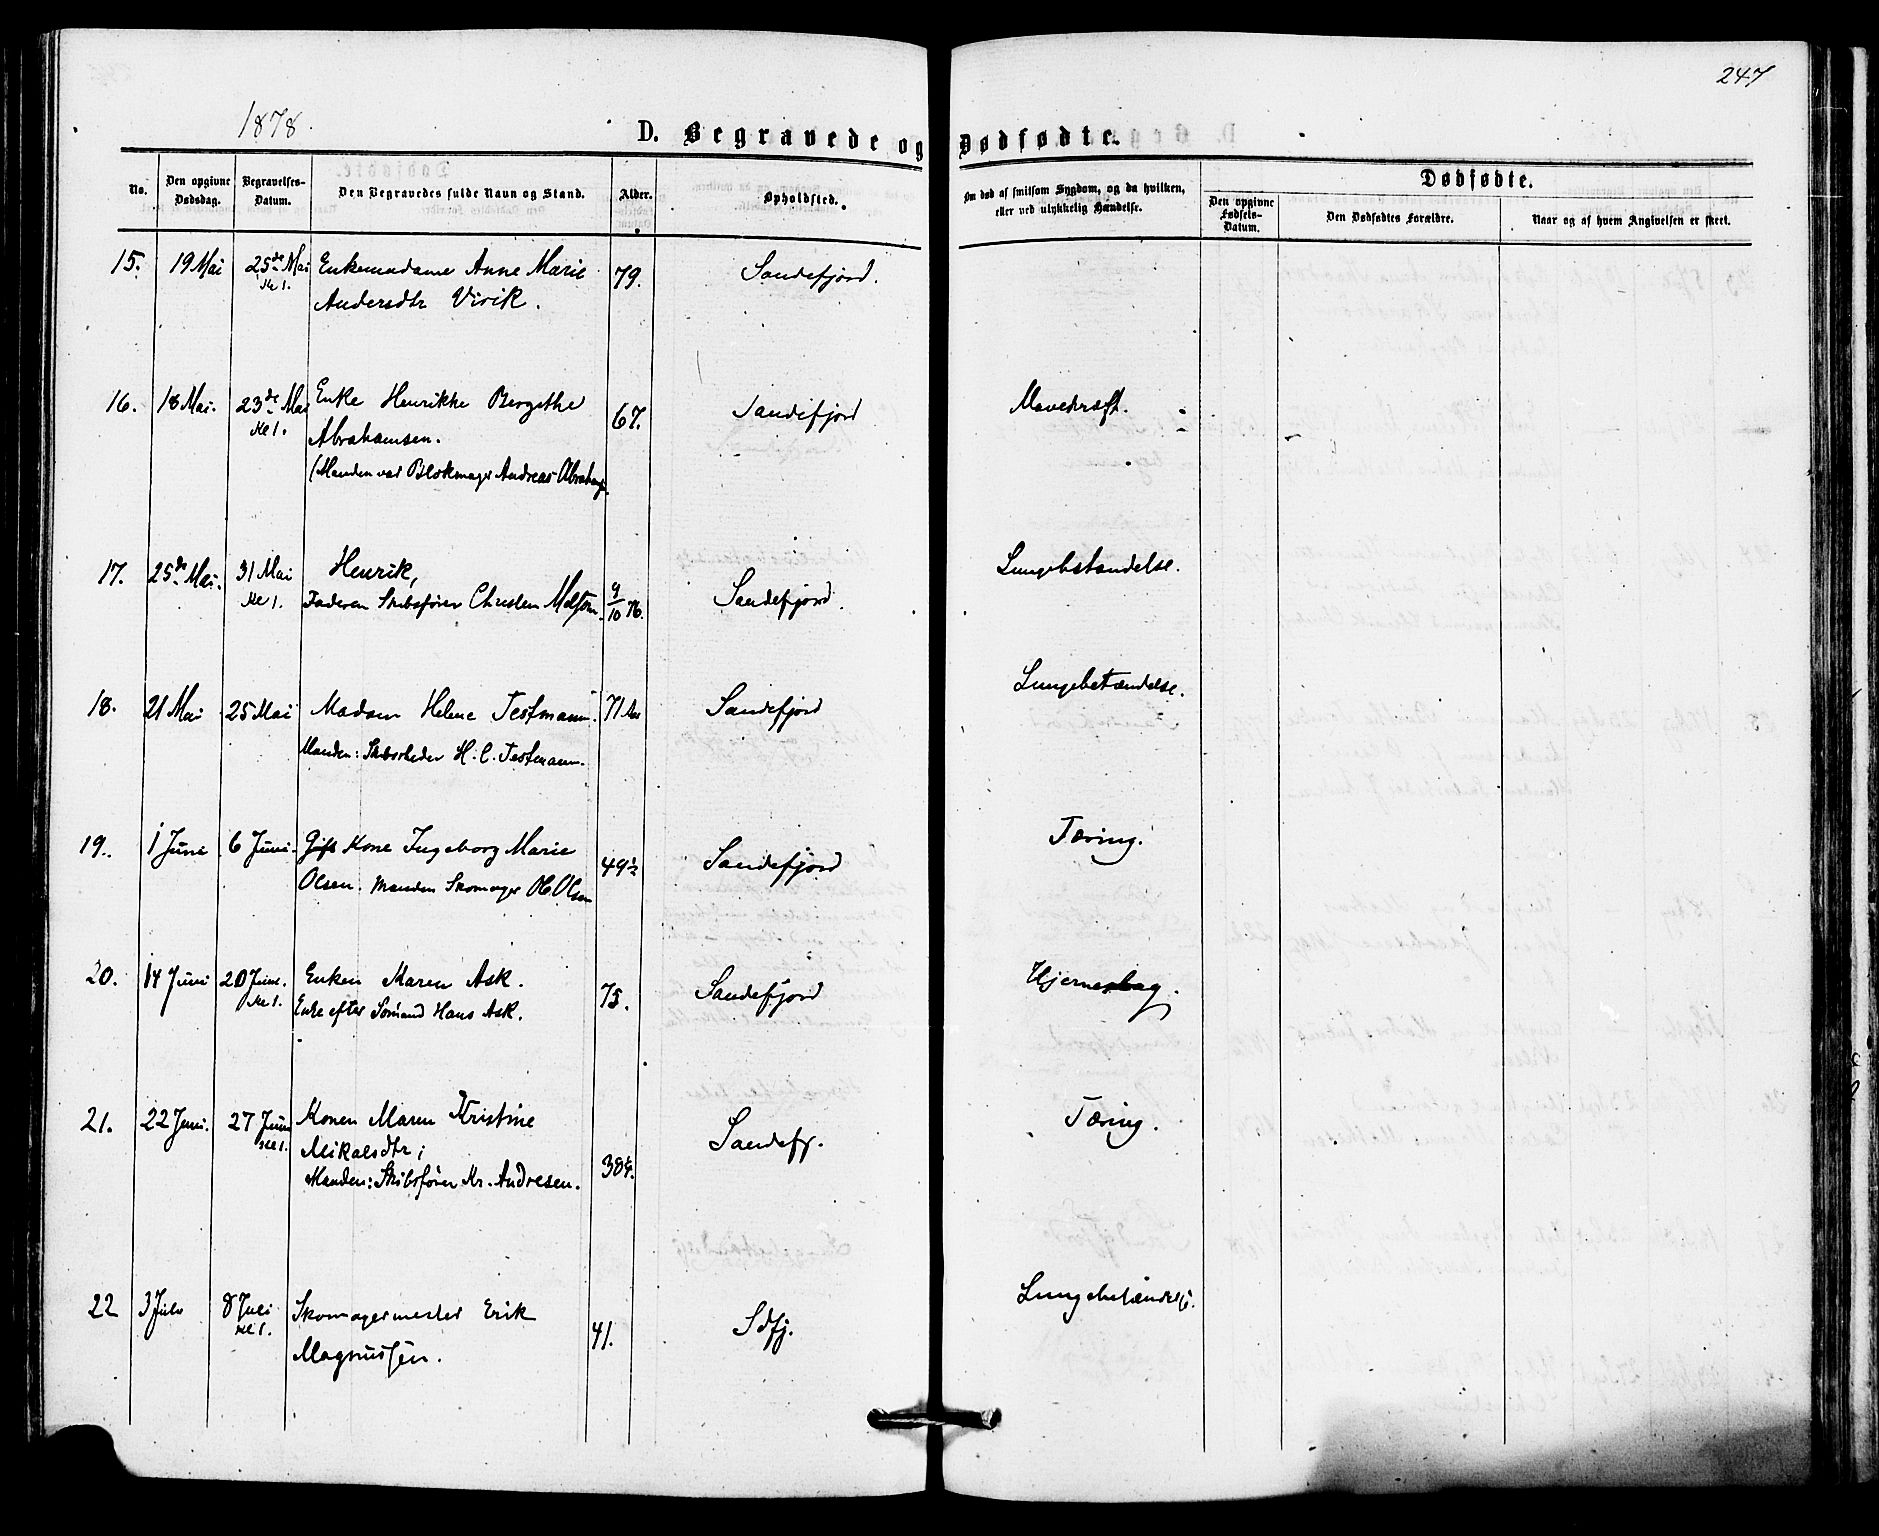 247
1878.
D. Begravede og Dødfødte.
No.
Den opgivne Dødsdag.
Begravelses-Datum.
Den Begravedes fulde Navn og Stand.
Alder.
Opholdsted.
Om død af smitsom Sygdom, og da hvilken, eller ved ulykkelig Hændelse.
Dødfødte.
Den opgivne Fødsels-Datum.
Den Dødfødtes Forældre.
Naar og af hvem Angivelsen er skeet.
15. 19 Mai 25de Mai Enkemadame Anne Marie 79. Sandefjord.
Kl 1. Andersdtr Virik.
16. 18 Mai. 23de Mai Enke Henrikke Bergethe 67. Sandefjord Mavekræft.
Kl 1. Abrahamsen.
(Manden var Blokmager Andreas Abrahams.
17. 25de Mai. 31 Mai Henrik, Lungebetændelse.
Kl 1. Faderen Skibsfører Christen Melsom. 9/10 76. Sandefjord.
18. 21 Mai 25 Mai Madam Helene Testmann. 71 Aar Sandefjord Lungebetændelse.
Manden: Skibsrheder H. C. Testmann.
19. 1 Juni 6 Juni. Gift Kone Ingeborg Marie 49½ Sandefjord Tæring.
Olsen. Manden Skomager Ol. Olsen
20. 14 Juni 20 Juni. Enken Maren Ask. 75. Sandefjord Hjerneslag.
Kl 1. Enke efter Sømand Hans Ask.
21. 22 Juni. 27 Juni Konen Maren Kristine Sandefj. Tæring.
Kl 1. Mikalsdtr;
Manden: Skibsfører Kr. Andresen. 38¼.
22 3 Juli 8 Juli Skomagermester Erik 41. Sdfj. Lungebetændelse.
Kl 1. Magnussen.